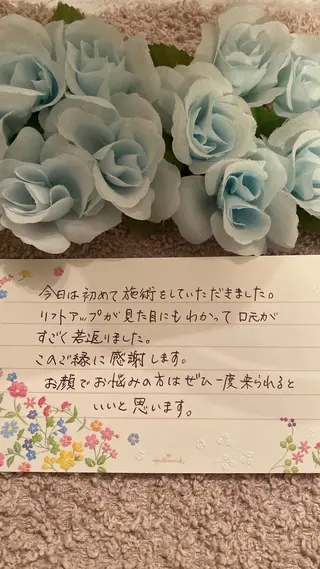 今日は初めて施術をしていただきました。
リフトアップが見た目にもわかって口元が
すごく若返りました。
このご縁に感謝します。
お顔でお悩みの方はぜひ一度来られると
いいと思います。
Hallmark